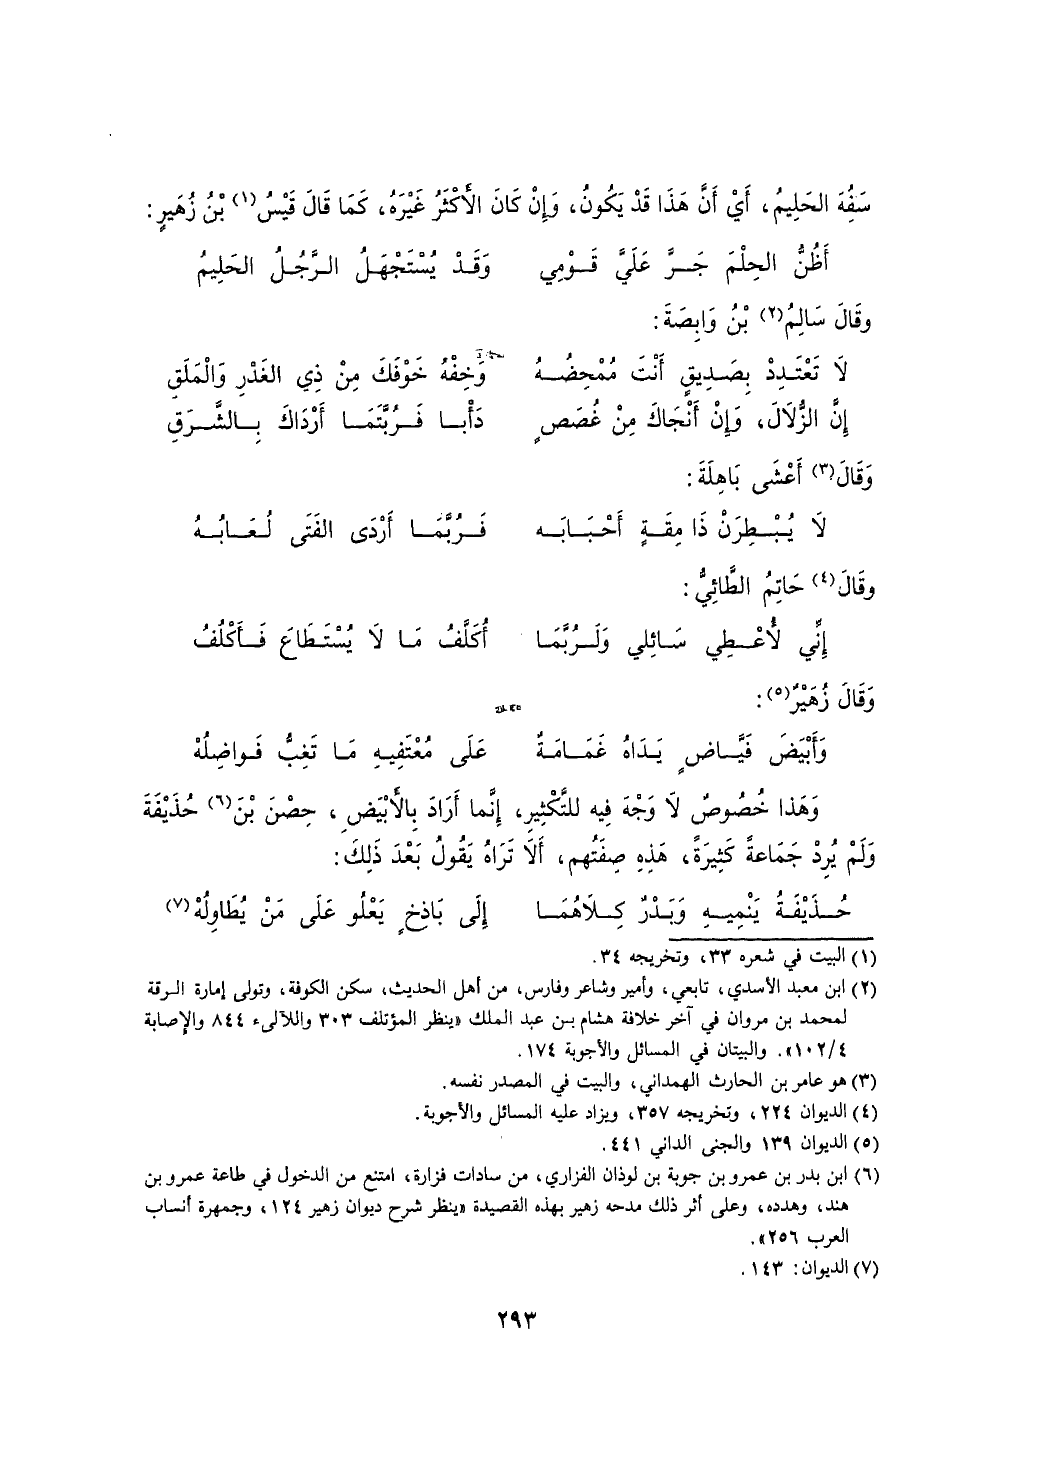 سَفُهَ الحَلِيمُ، أَيْ أَنَّ هَذَا قَدْ يَكُونُ، وَإِنْ كَانَ الأَكْثَرُ غَيْرَهُ، كَمَا قَالَ قَيْسُ(١) بْنُ زُهَيرٍ:
أَظُنُّ الحِلْمَ جَرَّ عَلَيَّ قَوْمِي وَقَدْ يُسْتَجْهَلُ الرَّجُلُ الحَلِيمُ
وقَالَ سَالِمُ(٢) بْنُ وَابِصَةَ:
لَا تَعْتَدِدْ بِصَدِيقٍ أَنْتَ مُمْحِضُهُ وَخِفْهُ خَوْفَكَ مِنْ ذِي الغَدْرِ وَالْمَلَقِ
إِنَّ الزُّلَالَ، وَإِنْ أَنْجَاكَ مِنْ غُصَصٍ دَأْبا فَرُبَّتَمَا أَرْدَاكَ بِالشَّرَقِ
وَقَالَ(٣) أَعْشَى بَاهِلَةَ:
لَا يُبْطِرَنْ ذَا مِقَةٍ أَحْبَابَه فَرُبَّمَا أَرْدَى الفَتَى لُعَابُهُ
وقَالَ(٤) حَاتِمُ الطَّائِيُّ:
إِنِّي لأُعْطِي سَائلي وَلَرُبَّمَا أُكَلَّفُ مَا لَا يُسْتَطَاعَ فَأَكْلُفُ
وَقَالَ زُهَيْرٌ(٥):
وَأَبْيَضَ فَيَّاضٍ يَدَاهُ غَمَامَةٌ عَلَى مُعْتَفِيهِ مَا تَغِبُّ فَواضِلُهْ
وَهَذا خُصُوصٌ لَا وَجْهَ فِيه للتَّكْثِيرِ، إِنَّما أَرَادَ بِالأَبْيَضِ، حِصْنَ بْنَ(٦) حُذَيْفَةَ
وَلَمْ يُرِدْ جَمَاعةً كَثِيرَةً، هَذِهِ صِفَتُهم، أَلَا تَرَاهُ يَقُولُ بَعْدَ ذَلِكَ:
حُذَيْفَةُ يَنْمِيهِ وَبَدْرٌ كِلَاهُمَا إِلَى بَاذِخٍ يَعْلُو عَلَى مَنْ يُطَاوِلُهْ(٧)
(١) البيت في شعره ٣٣، وتخريجه ٣٤.
(٢) ابن معبد الأسدي، تابعي، وأمير وشاعر وفارس، من أهل الحديث، سكن الكوفة، وتولى إمارة الرقة
لمحمد بن مروان في آخر خلافة هشام بن عبد الملك «ينظر المؤتلف ٣٠٣ واللآلىء ٨٤٤ والإصابة
١٠٢/٤». والبيتان في المسائل والأجوبة ١٧٤.
(٣) هو عامر بن الحارث الهمداني، والبيت في المصدر نفسه.
(٤) الديوان ٢٢٤، وتخريجه ٣٥٧، ويزاد عليه المسائل والأجوبة.
(٥) الديوان ١٣٩ والجنى الداني ٤٤١.
(٦) ابن بدر بن عمرو بن جوية بن لوذان الفزاري، من سادات فزارة، امتنع من الدخول في طاعة عمرو بن
هند، وهدده، وعلى أثر ذلك مدحه زهير بهذه القصيدة «ينظر شرح ديوان زهير ١٢٤، وجمهرة أنساب
العرب ٢٥٦».
(٧) الديوان: ١٤٣.
٢٩٣